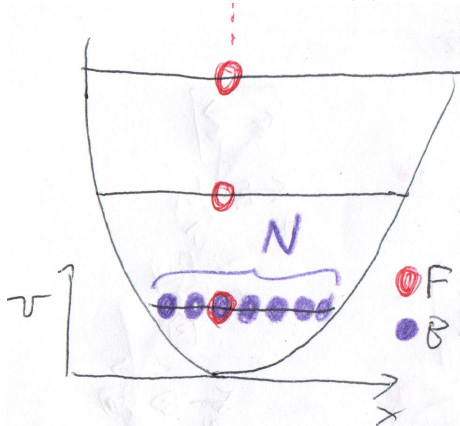 N
F
B
x